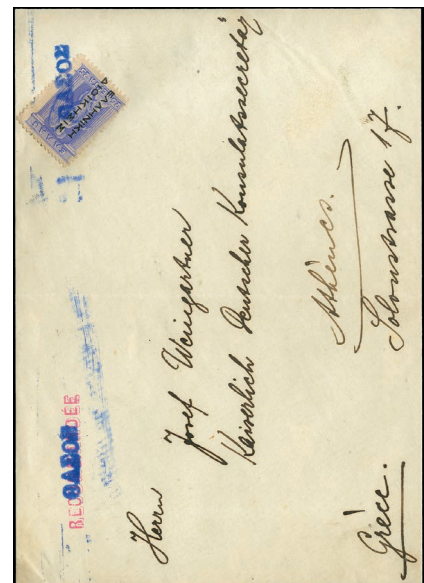 ΕΛΛΗΝΙΚΗ
ΔΙΟΙΚΗΣΙΣ
Herrn
Josef Weingartner
Kaiserlich Deutscher Konsulatssecretär
Athènes.
Solonstrasse 17.
Grèce.